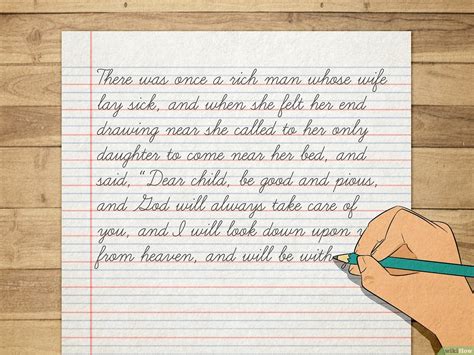 There was once a rich man whose wife
lay sick, and when she felt her end
drawing near she called to her only
daughter to come near her bed, and
said, "Dear child, be good and pious,
and God will always take care of
you, and I will look down upon
from heaven, and will be with
wikiHow